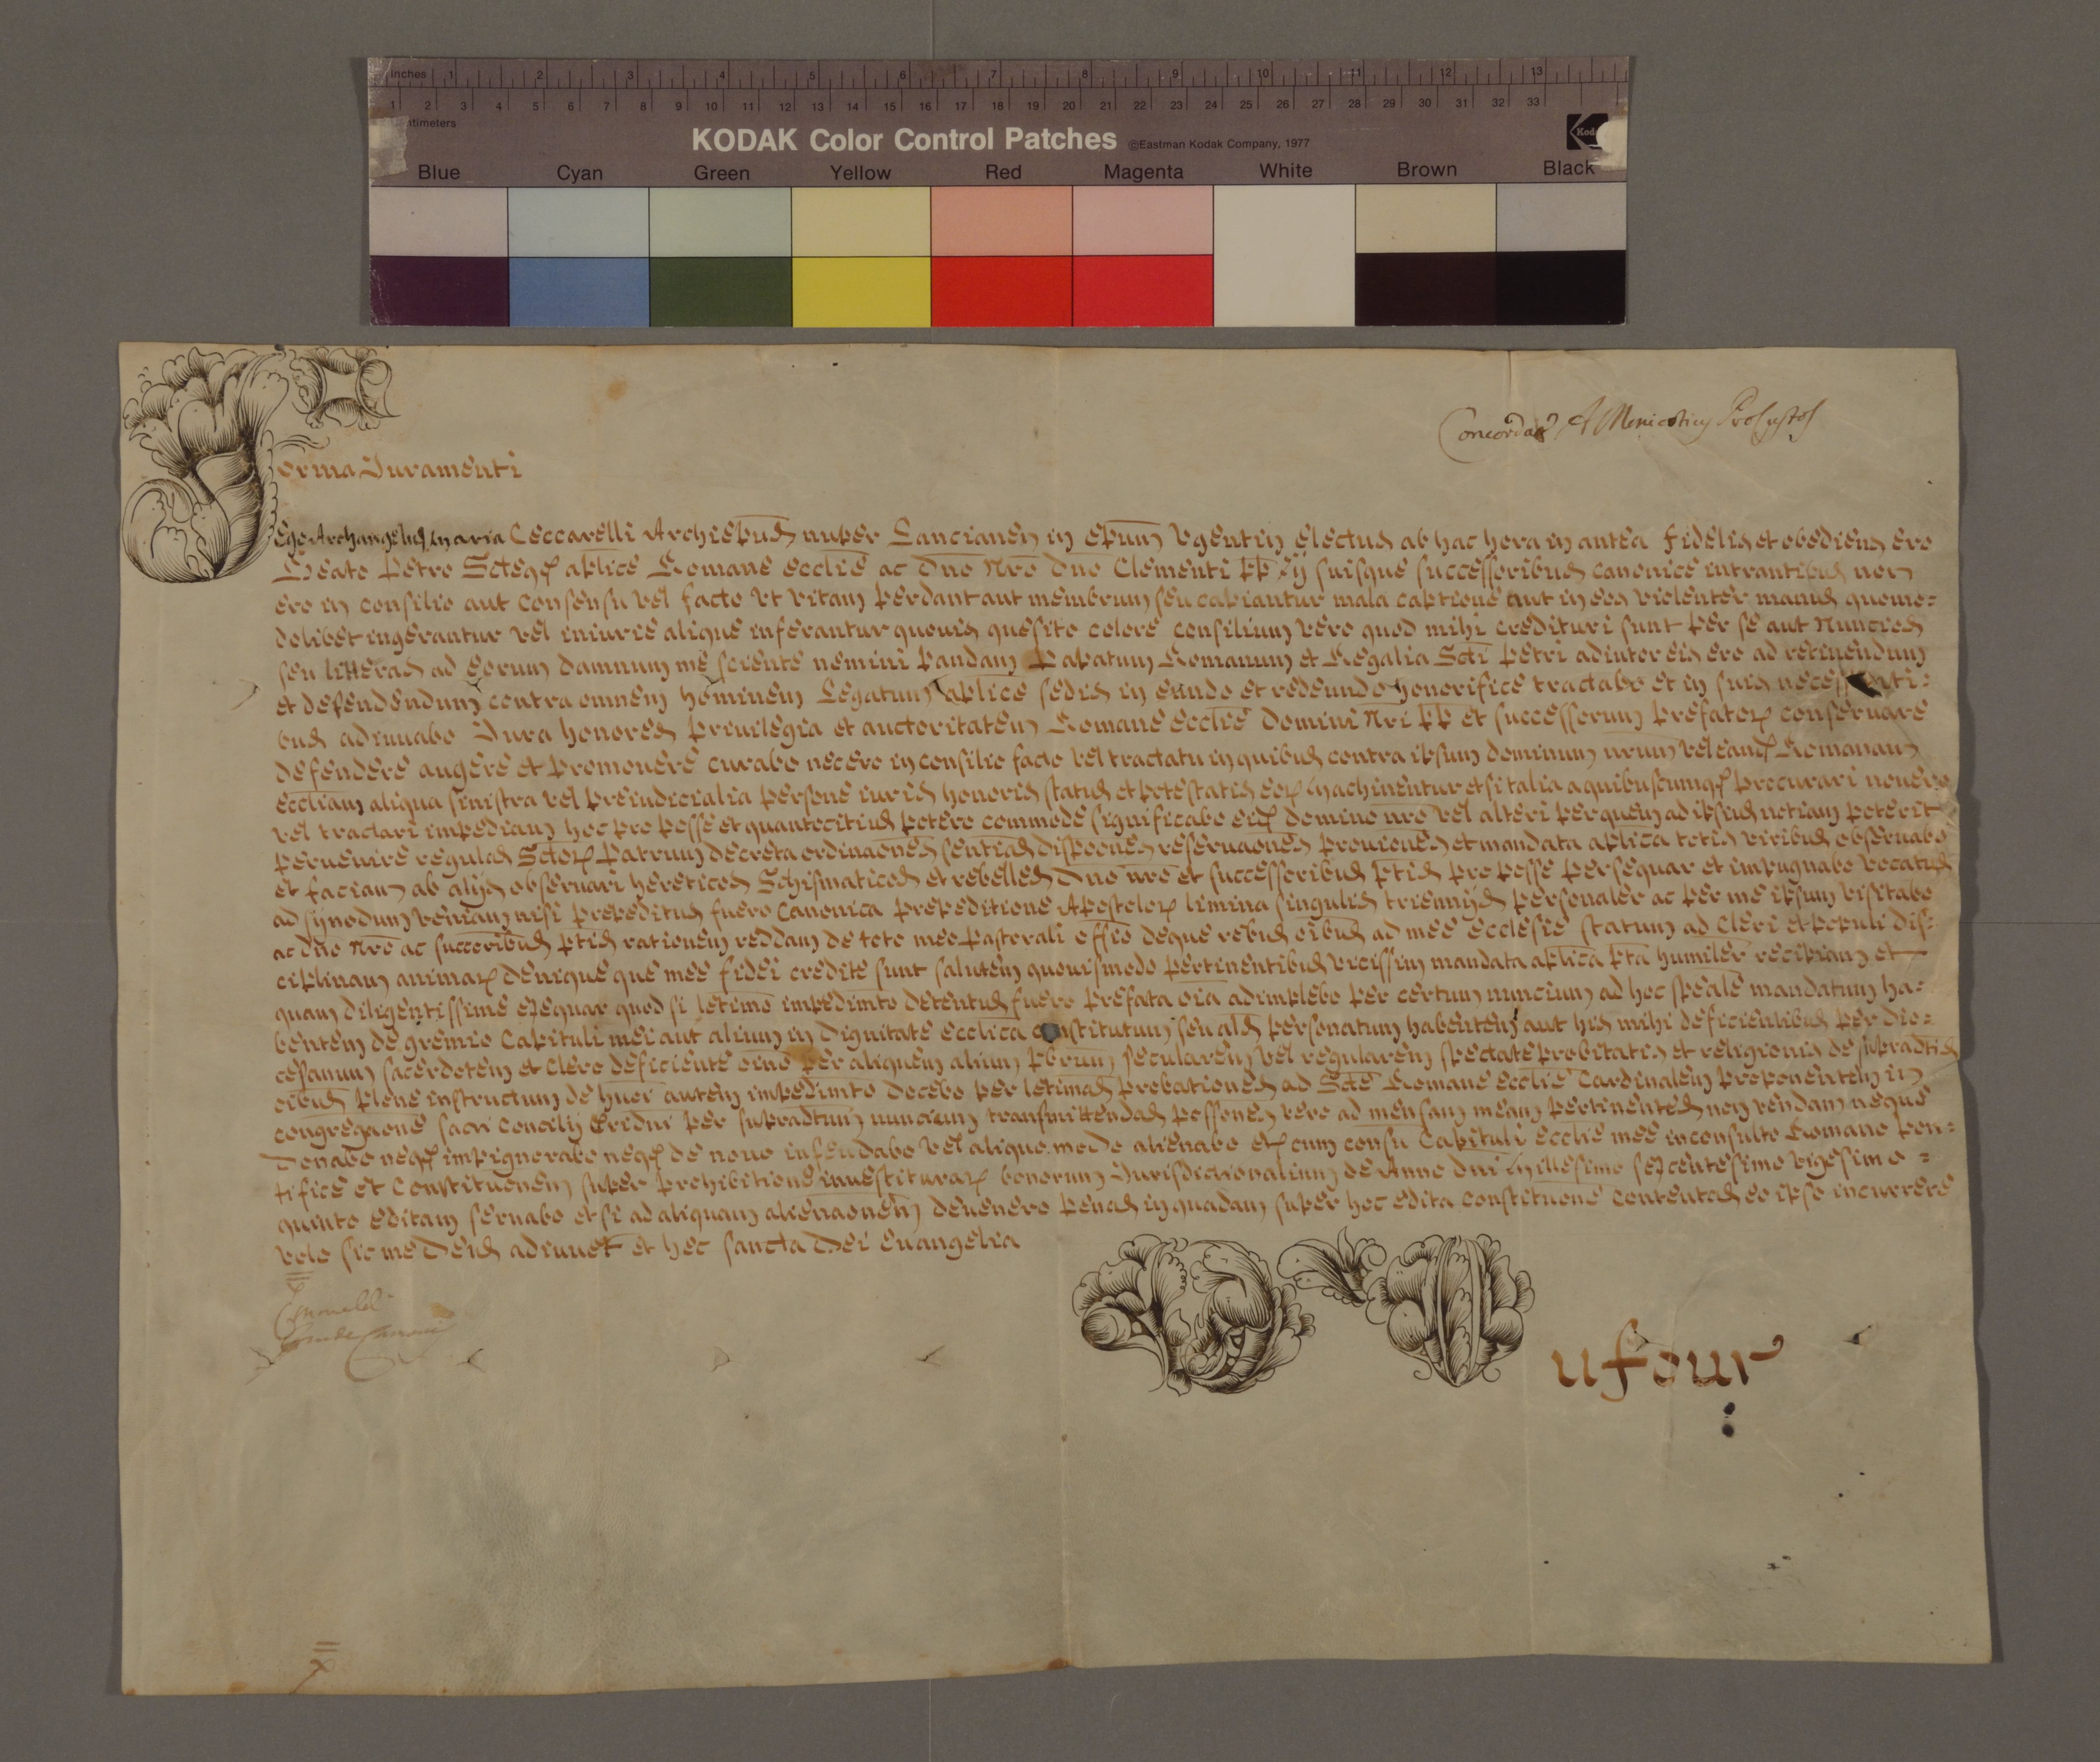 Inches 1 2 3 4 5 6 7 8 9 10 11 12 13
1 2 3 4 5 6 7 8 9 10 11 12 13 14 15 16 17 18 19 20 21 22 23 24 25 26 27 28 29 30 31 32 33
timeters
KODAK Color Control Patches ©Eastman Kodak Company, 1977 Kod
Blue Cyan Green Yellow Red Magenta White Brown Black
Concordat
Forma Juramenti
Ego Archangelus Maria Ceccarelli Archiepus nuper Lancianen in epum Ugentin electus ab hac hora in antea fidelis et obediens ero
Beato Petro Scteq aplice Romane ecclie ac Dno Nro Dno Clementi PP xij suisque successoribus canonice intrantibus non
ero in consilio aut consensu vel facto ut vitam perdant aut membrum seu capiantur mala captione aut in eos violenter manus quomo=
dolibet ingerantur vel iniurie alique inferantur quovis quesito colore consilium vero quod mihi credituri sunt per se aut Nuncios
seu litteras ad eorum damnum me sciente nemini pandam Papatum Romanum et Regalia Scti Petri adiutor eis ero ad retinendum
et defendendum contra omnem hominem Legatum aplice sedis in eundo et redeundo honorifice tractabo et in suis
bus adiuvabo Jura honores privilegia et auctoritatem Romane Ecclie Domini Nri PP et successorum prefator conservare
defendere augere et promovere curabo nec ero in consilio facto vel tractatu in quibus contra ipsum dominum nrum vel eand Romanam
eccliam aliqua sinistra vel preiudicialia persone iuris honoris status et potestatis eor machinentur et si talia a quibuscumq procurari novero
vel tractari impediam hoc pro posse et quantocitius potero commode significabo eid domino nro vel alteri per quem ad ipsius notiam poterit
pervenire regulas Sctor Patrum decreta ordinaones sentias dispoones reservaones provisiones et mandata aplica totis viribus observabo
et faciam ab alijs observari hereticos Schismaticos et rebelles Dno nro et successoribus ptis pro posse persequar et impugnabo vocatus
ad synodum veniam nisi prepeditus fuero Canonica prepeditione Apostolor limina singulis triennijs personaler ac per me ipsum visitabo
ac Dno Nro ac succoribus ptis rationem reddam de toto meo pastorali offio deque rebus oibus ad mee ecclesie statum ad Cleri et populi dis=
ciplinam animar denique que mee fidei credite sunt salutem quovismodo pertinentibus vicissim mandata aplica pta humiler recipiam et
quam diligentissime exequar quod si letimo impedimto detentus fuero prefata oia adimplebo per certum nuncium ad hoc speale mandatum ha=
bentem de gremio Capituli mei aut alium in Dignitate ecclica constitutum seu als personatum habentem aut his mihi deficientibus per dio=
cesanum sacerdotem et Clero deficiente oino per aliquem alium pbrum secularem vel regularem spectate probitatis et religionis de supradtis
oibus plene instructum de huoi autem impedimto docebo per letimas probationes ad Scte Romane Ecclie Cardinalem proponentem in
congregaone sacri Concilij Tridni per supradtum nuncium transmittendas possones vero ad mensam meam pertinentes non vendam neque
donabo neq impignorabo neq de novo infeudabo vel aliquo modo alienabo et cum consu Capituli Ecclie mee inconsulto Romano Pon=
tifice et Constituonem super prohibitione investiturar bonorum Jurisdictionalium de Anno Dni Millesimo sexcentesimo vigesimo=
quinto editam servabo et si ad aliquam alienaonem devenero penas in quadam super hoc edita constituone contentas eo ipso incurrere
volo sic me Deus adiuvet et hec sancta Dei Evangelia
ufour